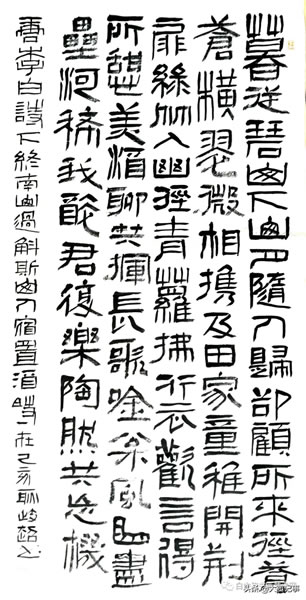 暮從碧山下山月隨人歸卻顧所來徑蒼
蒼橫翠微相攜及田家童稚開荊
扉綠竹入幽徑青蘿拂行衣歡言得
所憩美酒聊共揮長歌吟松風曲盡
星河稀我醉君復樂陶然共忘機
唐李白詩下終南山過斛斯山人宿置酒時在己亥